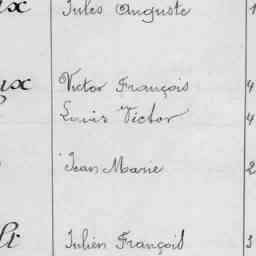 ux Jules Auguste 1
ux Victor François 4
Louis Victor 4
Jean Marie 2
li Julien François 3